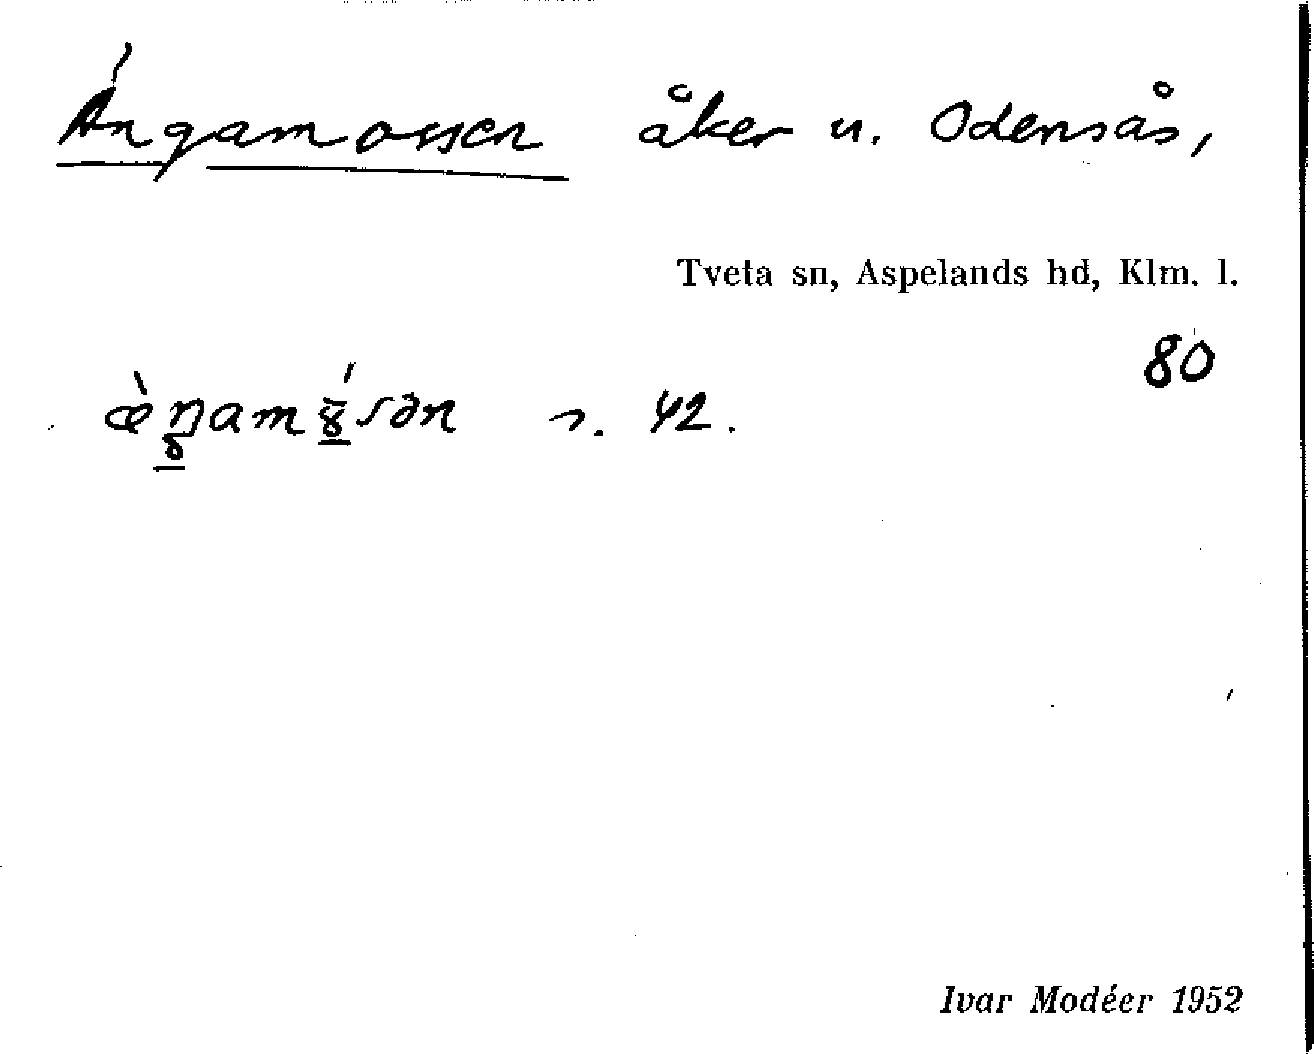 Ängamossen åker u. Odensås,
Tveta sn, Aspelands hd, Klm. l.
80
s. 42.
Ivar Modéer 1952